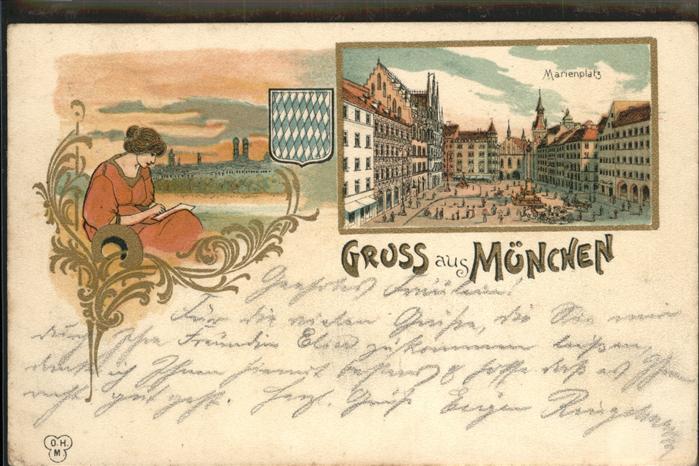 Marienplatz
GRUSS aus MÜNCHEN
Geehrtes Fräulein!
Für die vielen Grüße, die Sie mir
durch Ihre Freundin Elise zukommen ließen,
danke ich Ihnen hiermit bestens & hoffe daß es Ihnen
recht gut geht. Herzl. Gruß Eugen
O.H.
M.